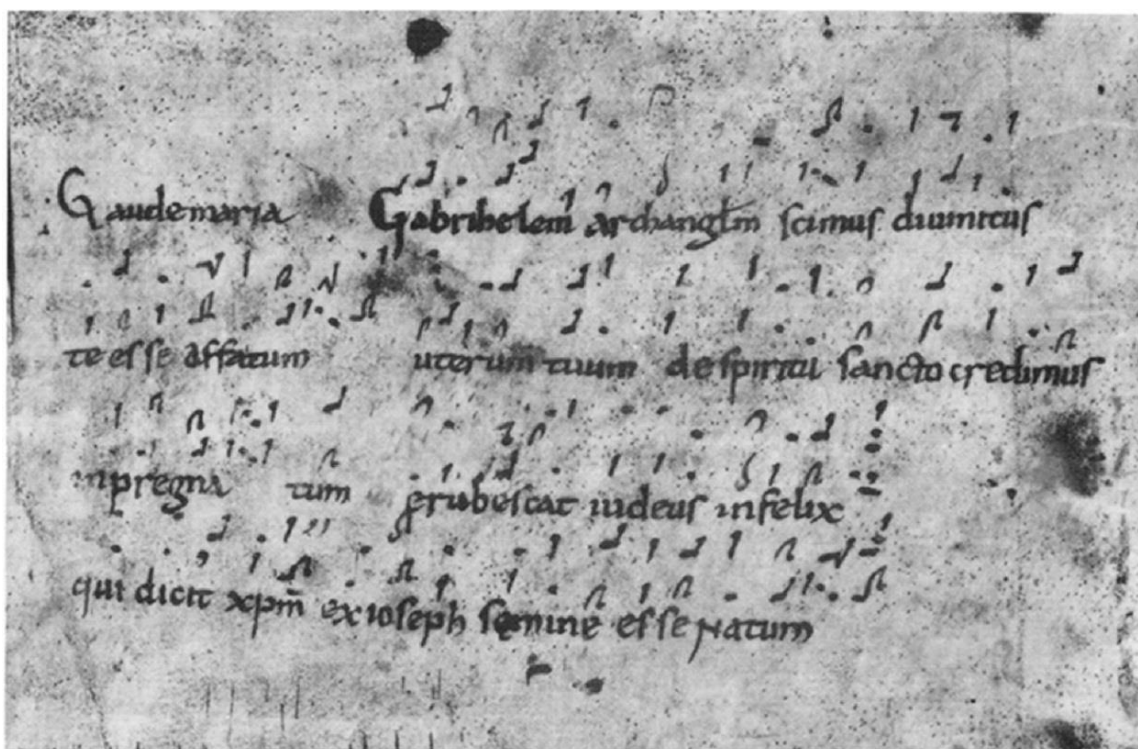 Gaude maria Gabrihelem archanglm scimus diuinitus
te esse affatum uterum tuum de spiritu sancto credimus
inpregna tum erubescat iudeus infelix
qui dicit xpm̄ ex ioseph semine esse natum